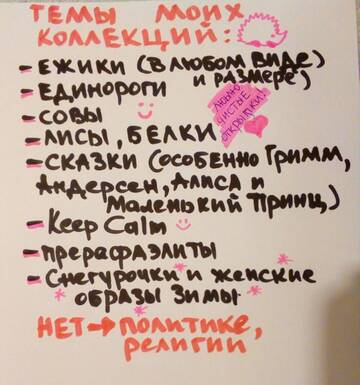 ТЕМЫ МОИХ
КОЛЛЕКЦИЙ:
- ЕЖИКИ (В ЛЮБОМ ВИДЕ
И РАЗМЕРЕ)
- ЕДИНОРОГИ
- СОВЫ
ЛЮБЛЮ
ЧИСТЫЕ
ОТКРЫТКИ!
- ЛИСЫ, БЕЛКИ
- СКАЗКИ (ОСОБЕННО ГРИММ,
АНДЕРСЕН, АЛИСА И
МАЛЕНЬКИЙ ПРИНЦ)
- Keep Calm
- ПРЕРАФАЭЛИТЫ
- СНЕГУРОЧКИ И ЖЕНСКИЕ
ОБРАЗЫ ЗИМЫ
НЕТ → ПОЛИТИКЕ,
РЕЛИГИИ